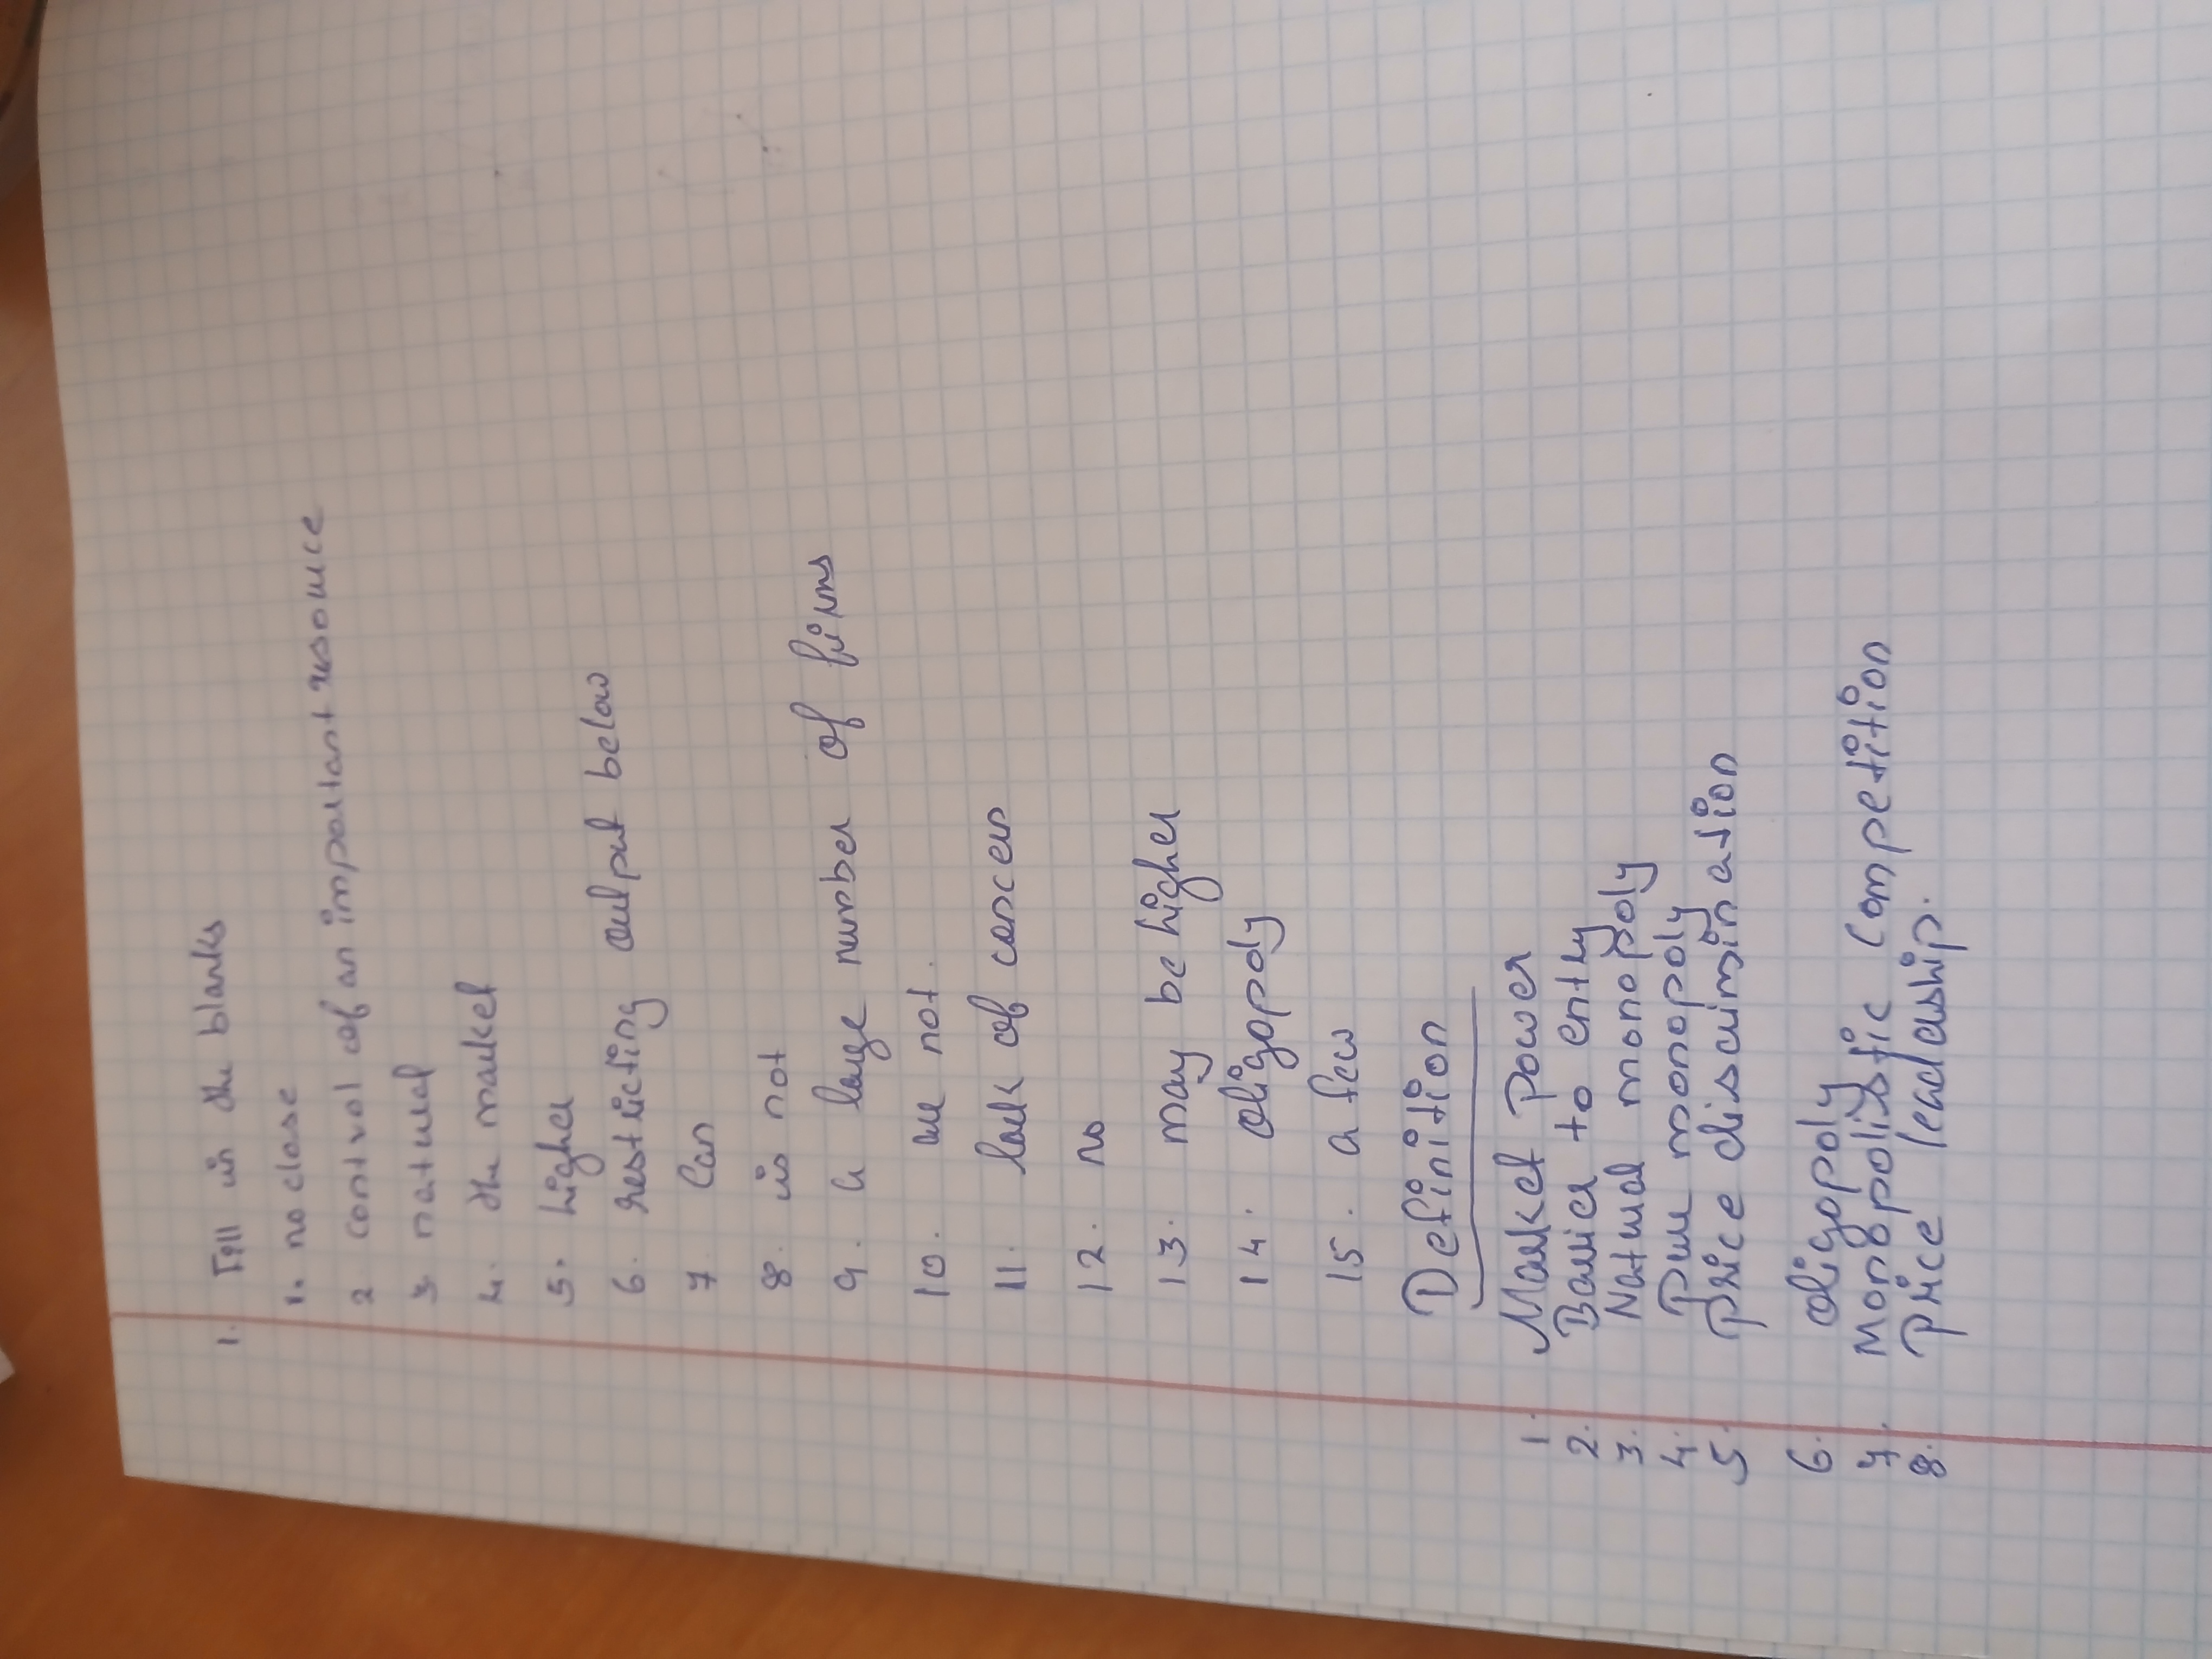 1. Fill in the blanks
1. no close
2 control of an important resource
3. natural
4. the market
5. higher
6. restricting output below
7. Can
8. is not
9. a large number of firms
10. are not.
11. lack of concern
12. no
13. may be higher
14. oligopoly
15. a few
Definition
1. Market Power
2. Barrier to entry
3. Natural monopoly
4. Pure monopoly
5. Price discrimination
6. oligopoly
7. Monopolistic Competition
8. Price leadership.